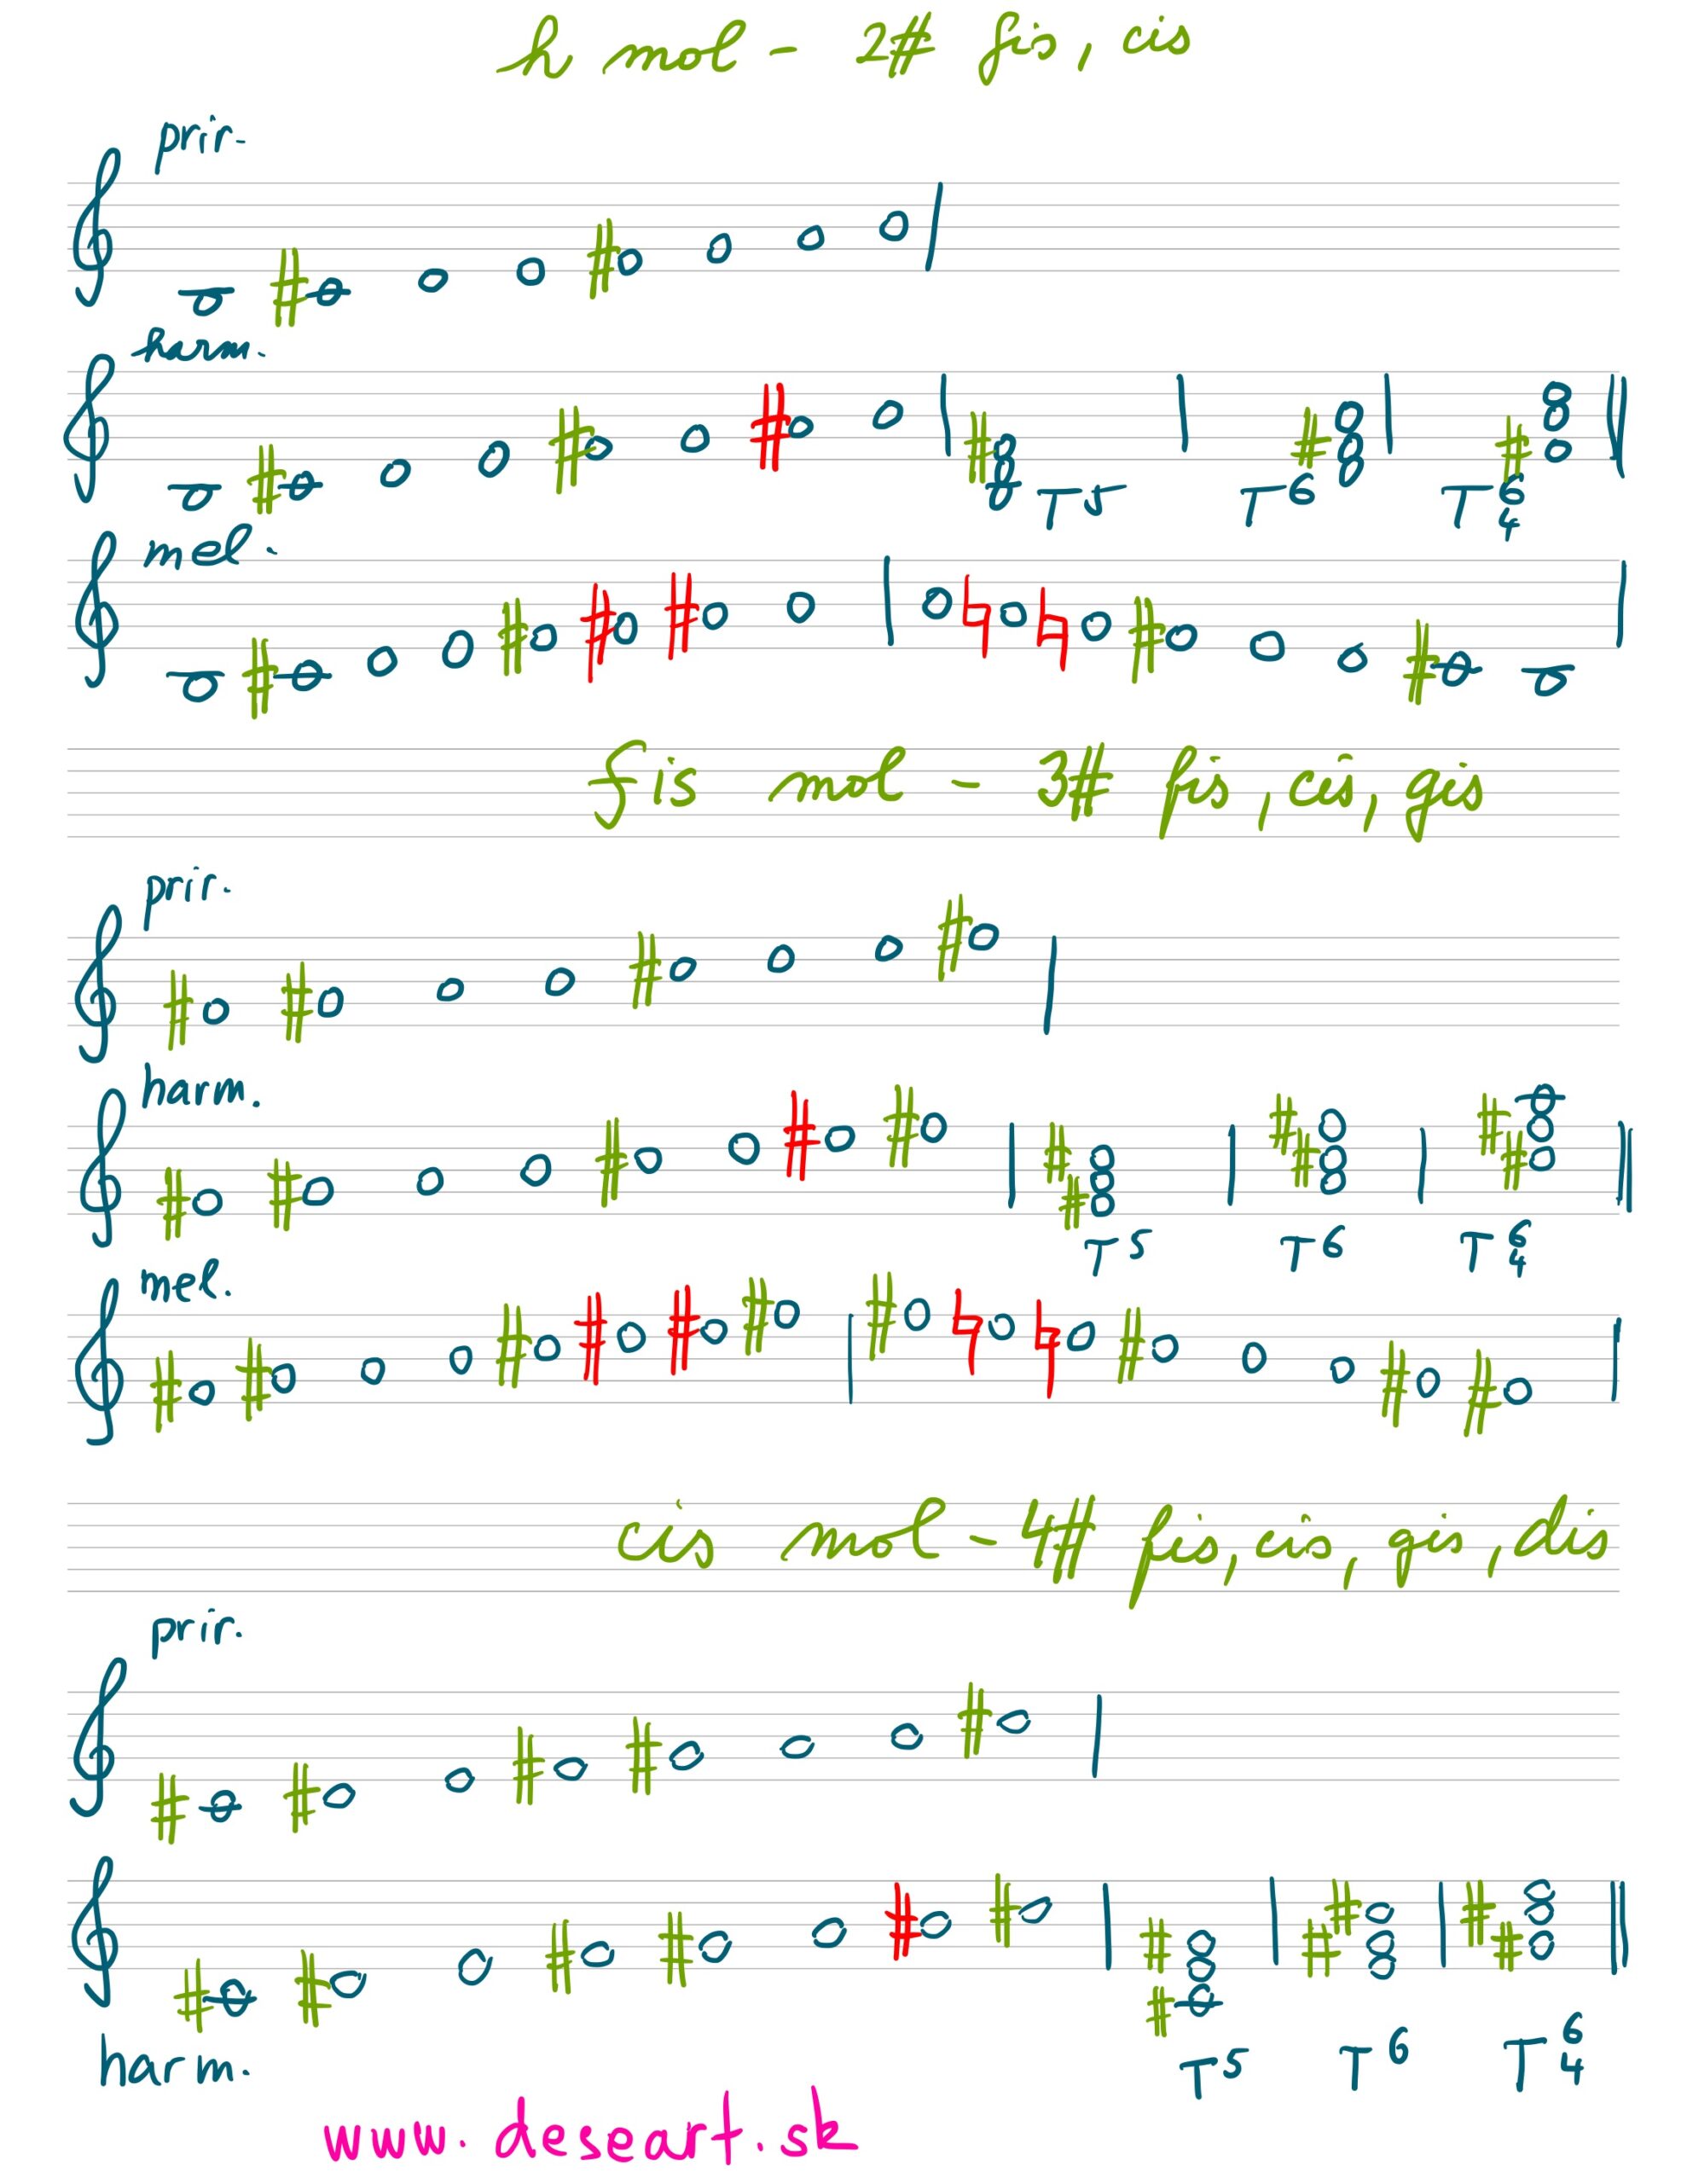 h mol - 2# fis, cis
prir.
harm.
T5 T6 T6
4
mel.
fis mol - 3# fis, cis, gis
prir.
harm.
T5 T6 T6
4
mel.
cis mol - 4# fis, cis, gis, dis
prir.
harm. T5 T6 T6
4
www.deseart.sk